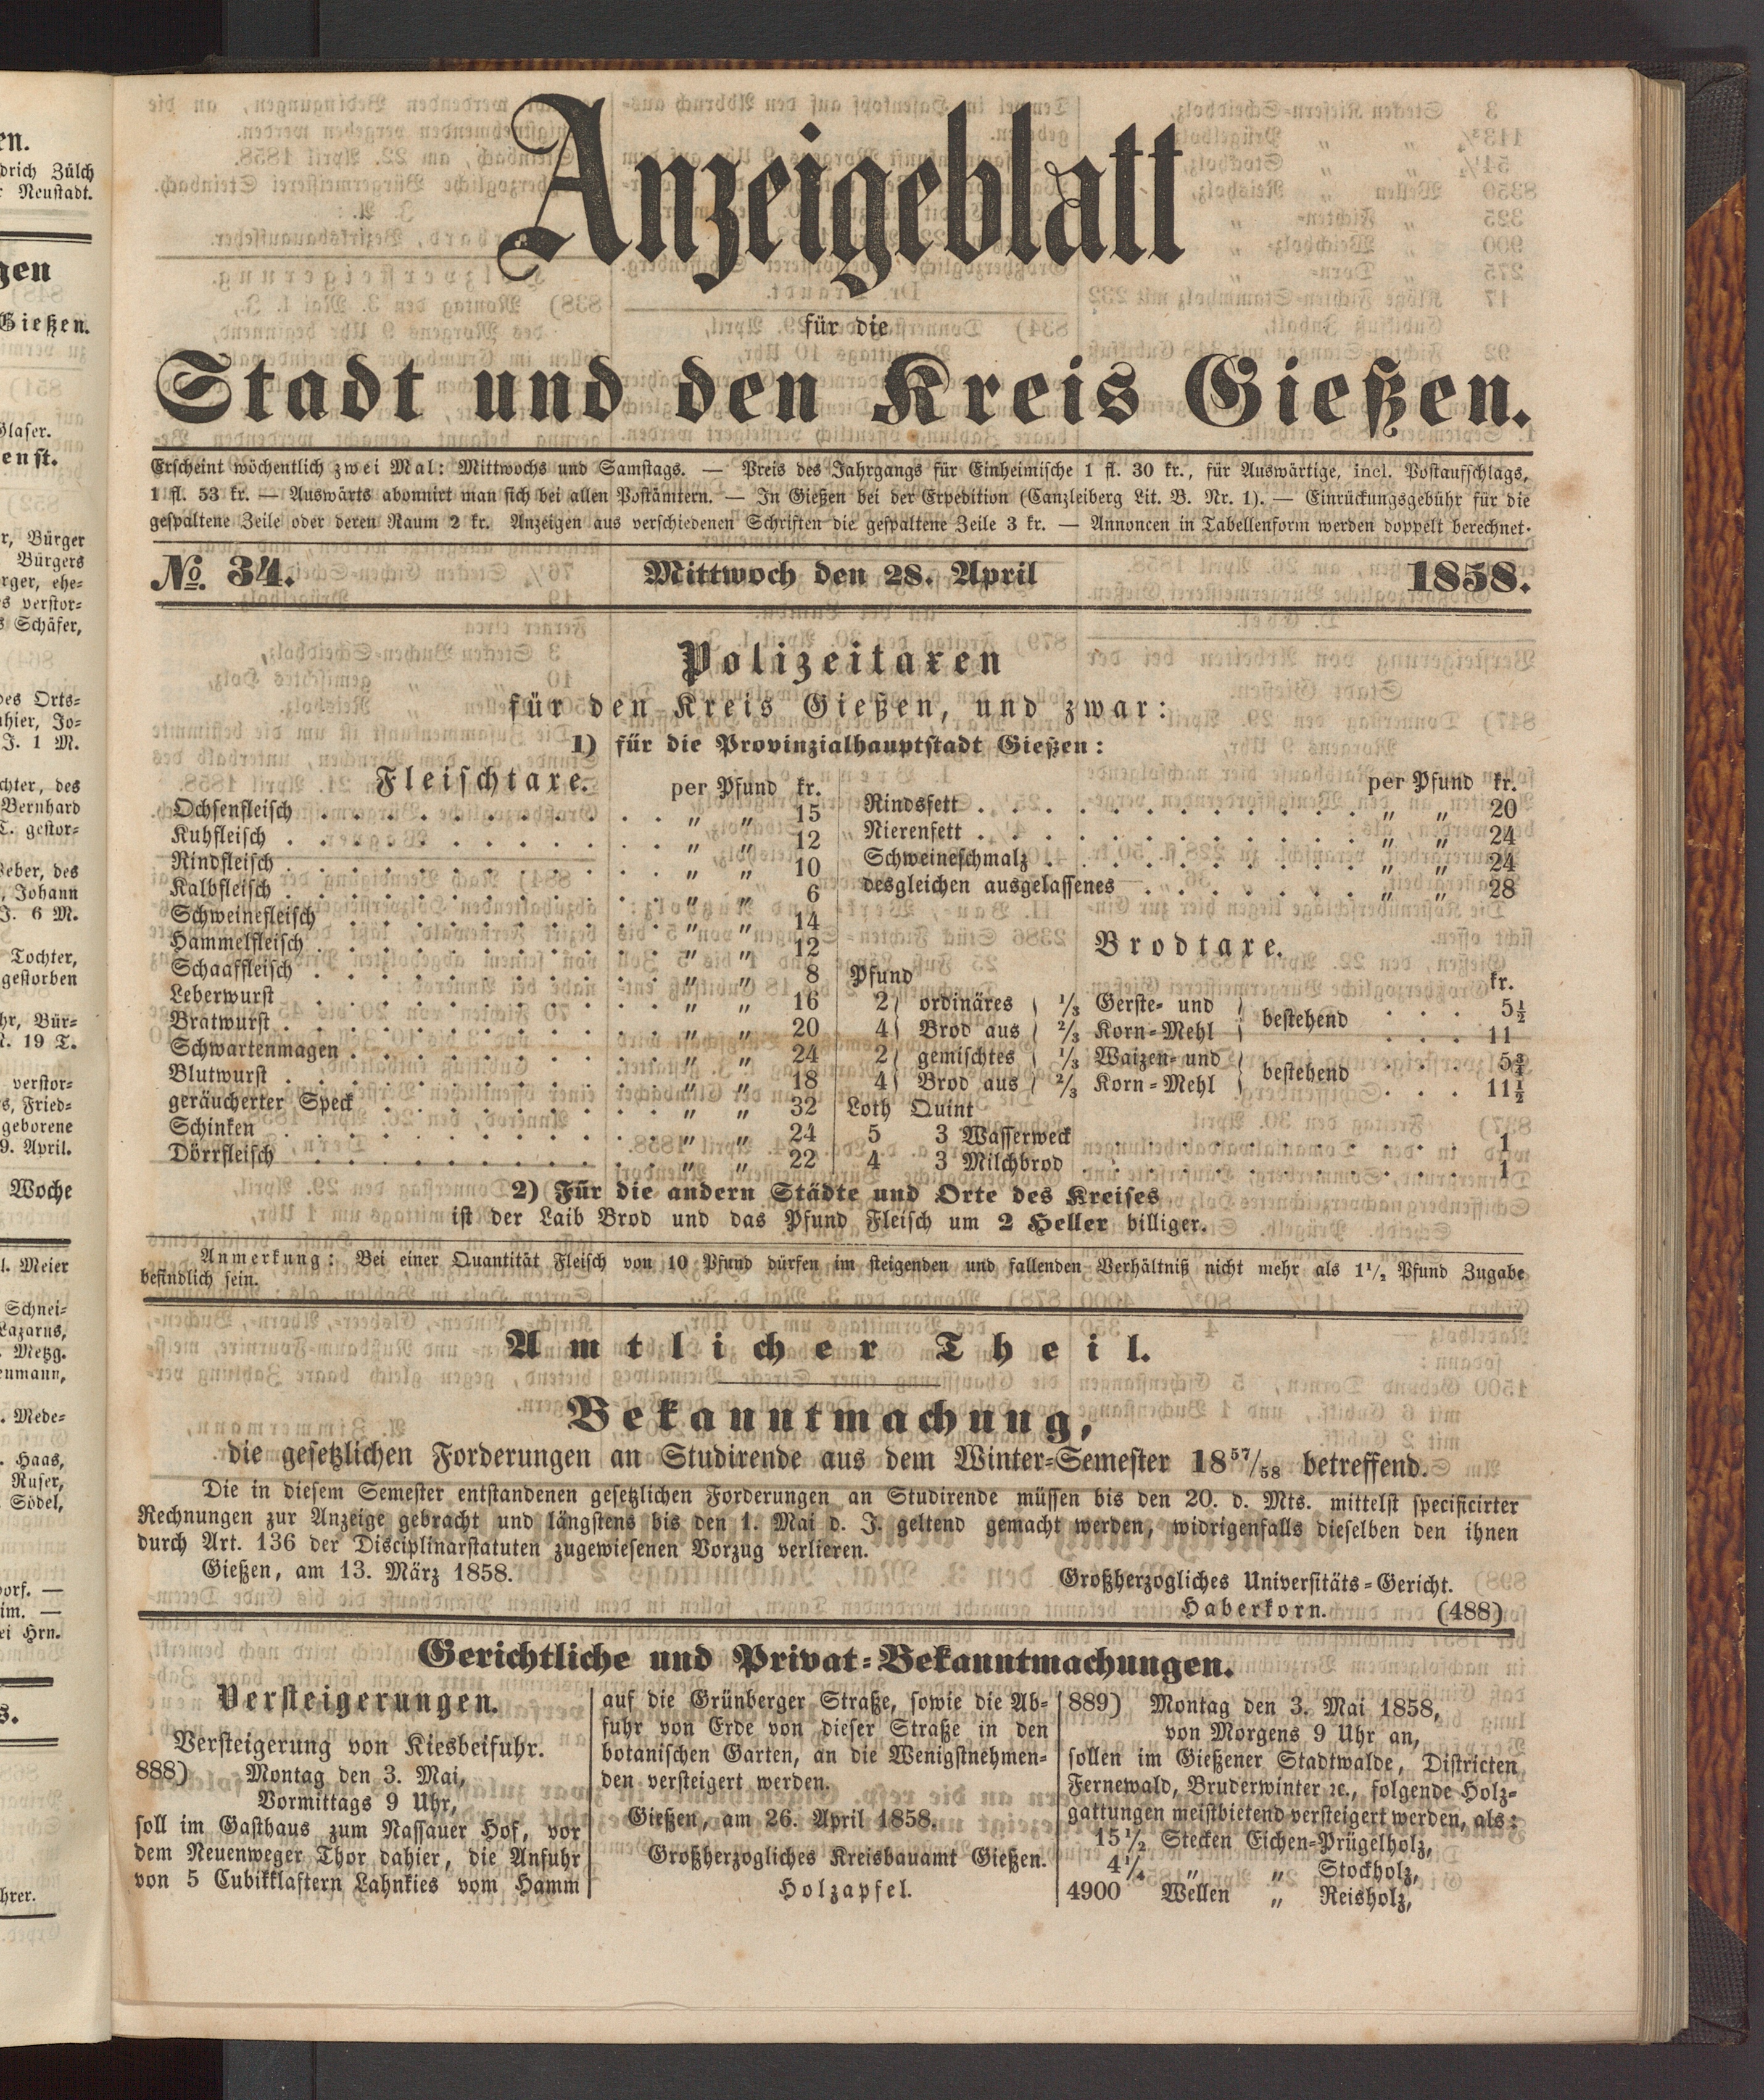 en.
drich Zülch
Neustadt.
gen
Gießen.
Glaser.
enst.
r, Bürger
Bürgers
rger, ehe-
s verstor-
s Schäfer,
des Orts-
ahier, Jo-
J. 1 M.
chter, des
Bernhard
T. gestor-
Weber, des
, Johann
J. 6 M.
Tochter,
gestorben
hr, Bür-
M. 19 T.
verstor-
s, Fried-
geborene
9. April.
Woche
l. Meier
Schnei-
Lazarus,
. Metzg.
enmann,
. Mede-
. Haas,
Ruser,
Södel,
dorf. —
im. —
ei Hrn.
s.
hrer.
Anzeigeblatt
für die
Stadt und den Kreis Gießen.
Erscheint wöchentlich zwei Mal: Mittwochs und Samstags. — Preis des Jahrgangs für Einheimische 1 fl. 30 kr., für Auswärtige, incl. Postaufschlags,
1 fl. 53 kr. — Auswärts abonnirt man sich bei allen Postämtern. — In Gießen bei der Expedition (Canzleiberg Lit. B. Nr. 1). — Einrückungsgebühr für die
gespaltene Zeile oder deren Raum 2 kr. Anzeigen aus verschiedenen Schriften die gespaltene Zeile 3 kr. — Annoncen in Tabellenform werden doppelt berechnet.
No. 34. Mittwoch den 28. April 1858.
Polizeitaxen
für den Kreis Gießen, und zwar:
1) für die Provinzialhauptstadt Gießen:
Fleischtaxe. per Pfund kr.
Ochsenfleisch . . . . . . . . . . „ „ 15
Kuhfleisch . . . . . . . . . . „ „ 12
Rindfleisch . . . . . . . . . . „ „ 10
Kalbfleisch . . . . . . . . . . „ „ 6
Schweinefleisch . . . . . . . . . „ „ 14
Hammelfleisch . . . . . . . . . „ „ 12
Schaaffleisch . . . . . . . . . „ „ 8
Leberwurst . . . . . . . . . . „ „ 16
Bratwurst . . . . . . . . . . „ „ 20
Schwartenmagen . . . . . . . . . „ „ 24
Blutwurst . . . . . . . . . . „ „ 18
geräucherter Speck . . . . . . . . „ „ 32
Schinken . . . . . . . . . . „ „ 24
Dörrfleisch . . . . . . . . . „ „ 22
per Pfund kr.
Rindsfett . . . . . . . . . . . „ „ 20
Nierenfett . . . . . . . . . . . „ „ 24
Schweineschmalz . . . . . . . . . „ „ 24
desgleichen ausgelassenes . . . . . . . „ „ 28
Brodtaxe.
Pfund kr.
2 } ordinäres { 1/3 Gerste- und } bestehend . . . 5½
4 } Brod aus { 2/3 Korn-Mehl } . . . 11
2 } gemischtes { 1/3 Waizen- und } bestehend . . . 5¾
4 } Brod aus { 2/3 Korn-Mehl } . . . 11½
Loth Quint
5 3 Wasserweck . . . . . . . . . . 1
4 3 Milchbrod . . . . . . . . . . 1
2) Für die andern Städte und Orte des Kreises
ist der Laib Brod und das Pfund Fleisch um 2 Heller billiger.
Anmerkung: Bei einer Quantität Fleisch von 10 Pfund dürfen im steigenden und fallenden Verhältniß nicht mehr als 1½ Pfund Zugabe
befindlich sein.
Amtlicher Theil.
Bekanntmachung,
die gesetzlichen Forderungen an Studirende aus dem Winter-Semester 1857/58 betreffend.
Die in diesem Semester entstandenen gesetzlichen Forderungen an Studirende müssen bis den 20. d. Mts. mittelst specificirter
Rechnungen zur Anzeige gebracht und längstens bis den 1. Mai d. J. geltend gemacht werden, widrigenfalls dieselben den ihnen
durch Art. 136 der Disciplinarstatuten zugewiesenen Vorzug verlieren.
Gießen, am 13. März 1858. Großherzogliches Universitäts-Gericht.
Haberkorn. (488)
Gerichtliche und Privat-Bekanntmachungen.
Versteigerungen.
Versteigerung von Kiesbeifuhr.
888) Montag den 3. Mai,
Vormittags 9 Uhr,
soll im Gasthaus zum Nassauer Hof, vor
dem Neuenweger Thor dahier, die Anfuhr
von 5 Cubikklaftern Lahnkies vom Hamm
auf die Grünberger Straße, sowie die Ab-
fuhr von Erde von dieser Straße in den
botanischen Garten, an die Wenigstnehmen-
den versteigert werden.
Gießen, am 26. April 1858.
Großherzogliches Kreisbauamt Gießen.
Holzapfel.
889) Montag den 3. Mai 1858,
von Morgens 9 Uhr an,
sollen im Gießener Stadtwalde, Districten
Fernewald, Bruderwinter ꝛc., folgende Holz-
gattungen meistbietend versteigert werden, als:
15½ Stecken Eichen-Prügelholz,
4¼ „ „ Stockholz,
4900 Wellen „ Reisholz,